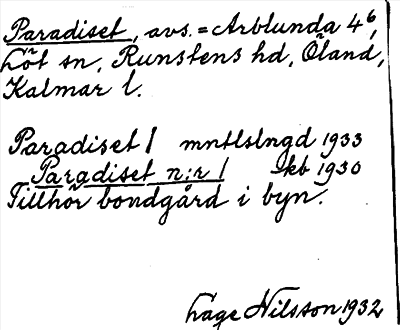 Paradiset, avs. = Arblunda 4⁶,
Löt sn, Runstens hd, Öland,
Kalmar l.
Paradiset 1 mntlslngd 1933
Paradiset n:r 1 Jkb 1930
Tillhör bondgård i byn.
Lage Nilsson 1932